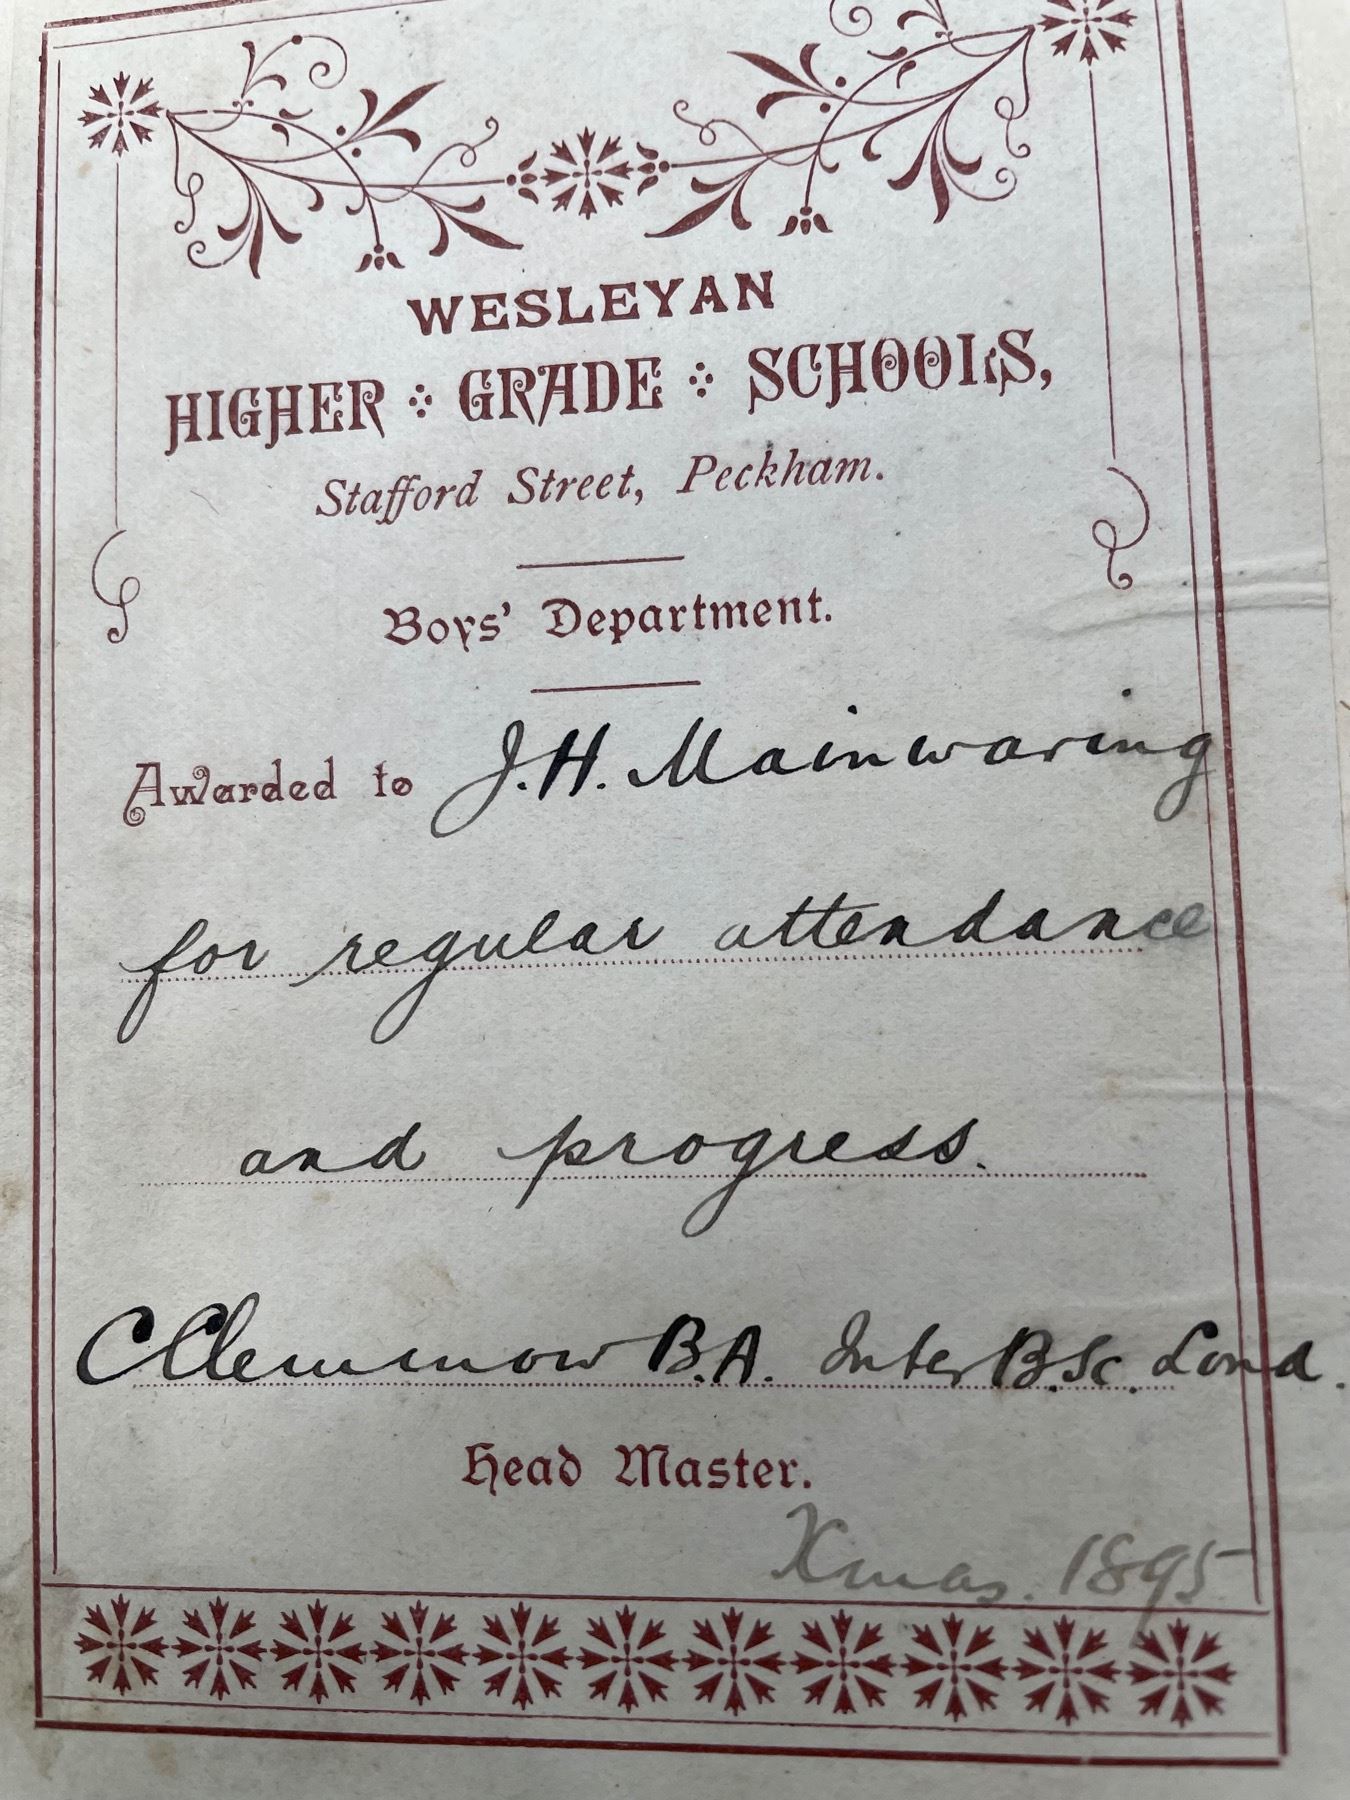 WESLEYAN
HIGHER GRADE SCHOOLS,
Stafford Street, Peckham.
Boys' Department.
Awarded to J. H. Mainwaring
for regular attendance
and progress.
C Clemmow B.A. Inter B.Sc. Lond.
Head Master.
Xmas. 1895